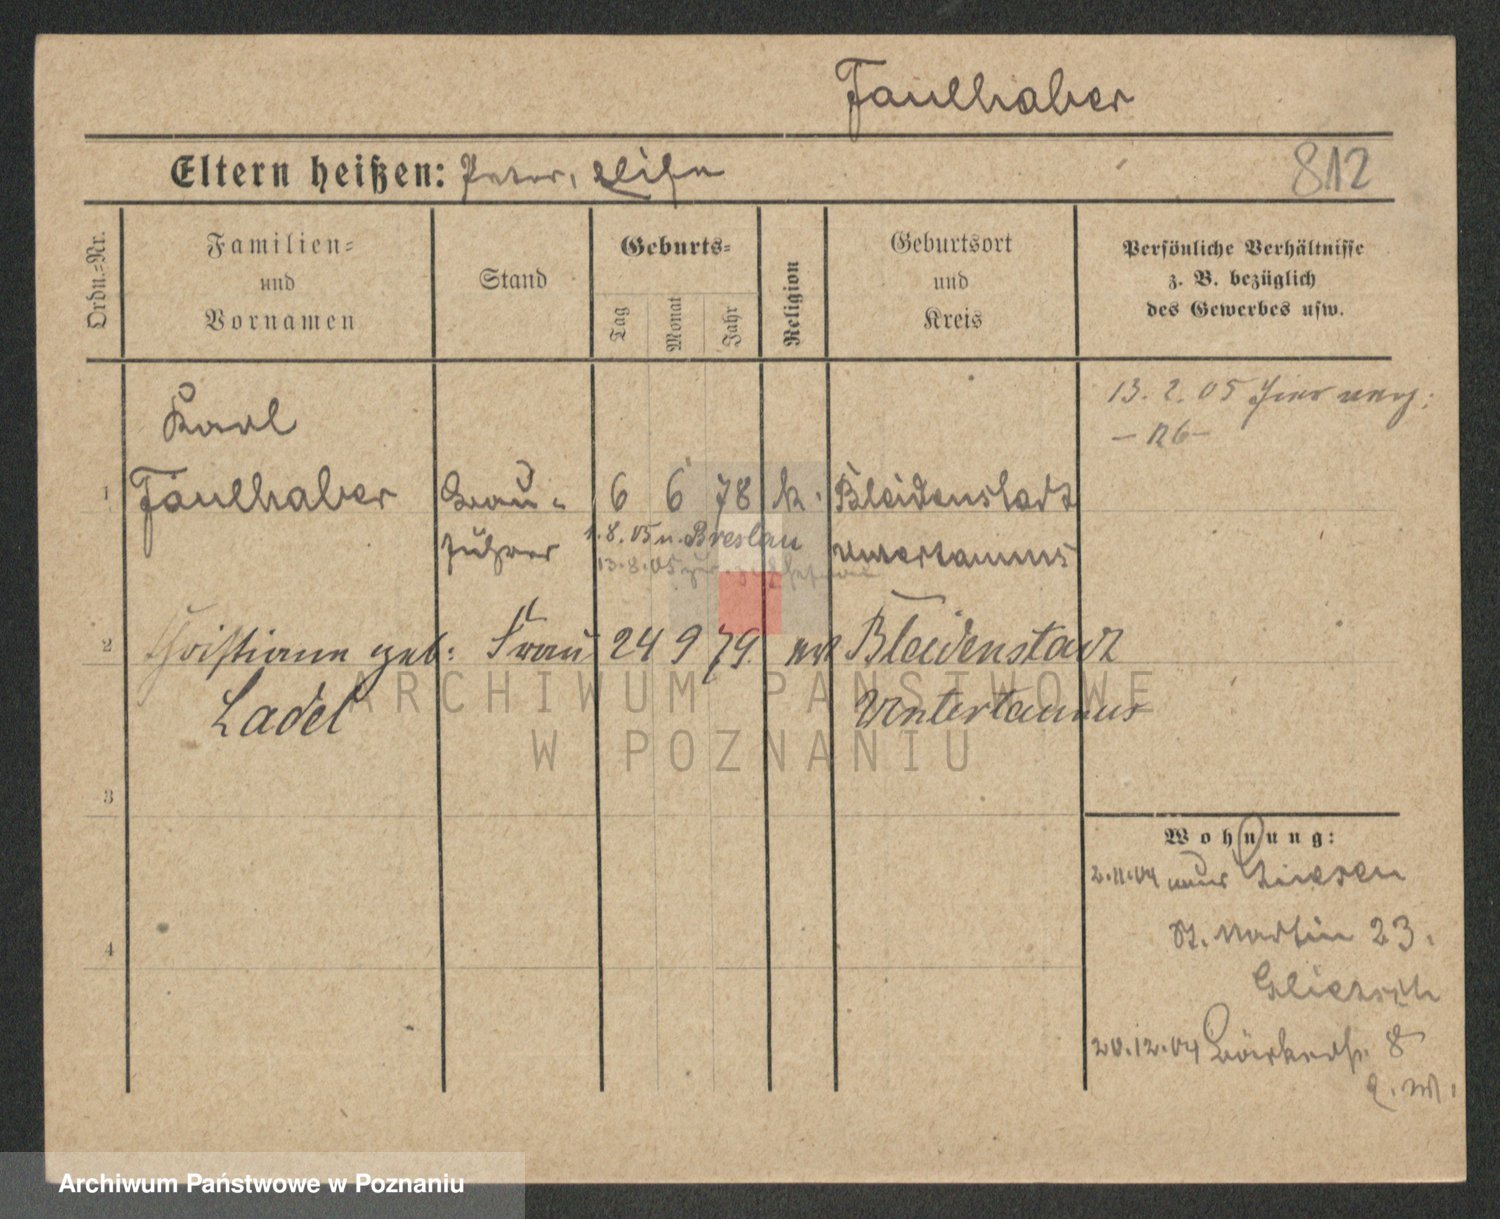 Faulhaber
Eltern heißen: Peter, Elise
812
Ordn.=Nr.
Familien=
und
Vornamen
Stand
Geburts=
Tag
Monat
Jahr
Religion
Geburtsort
und
Kreis
Persönliche Verhältnisse
z. B. bezüglich
des Gewerbes usw.
13. 2. 05 hier
Karl
1 Faulhaber Bau- 6 6 78 k. Bleidenstadt
führer Untertaunus
1.8.05 n. Breslau
13.8.05
2 Christiane geb: Frau 24 9 79. Bleidenstadt
Ladel Untertaunus
ARCHIWUM PAŃSTWOWE
W POZNANIU
3
Wohnung:
2.11.04
St. Martin 23.
4
20.12.04 Bäckerstr. 8
Archiwum Państwowe w Poznaniu